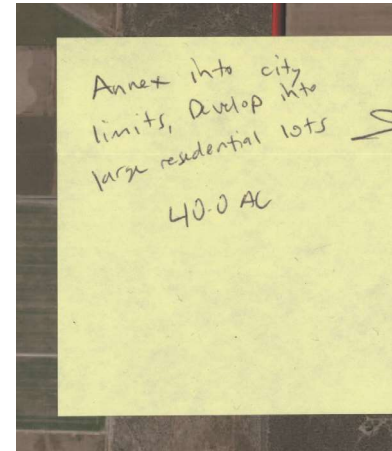 Annex into city
limits, Develop into
large resedential lots
40.0 AC